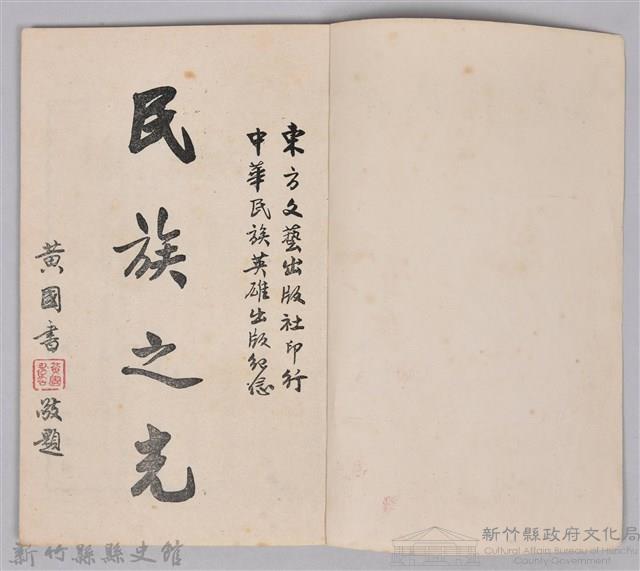 東方文藝出版社印行
中華民族英雄出版紀念
民族之光
黃國書
敬題
新竹縣縣史館
新竹縣政府文化局
Cultural Affairs Bureau of Hsinchu
County Government